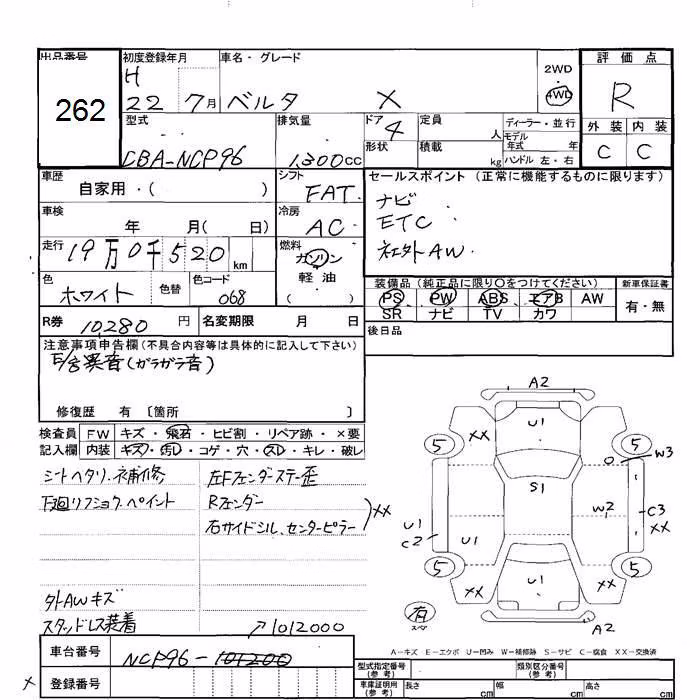 出品番号
262
初度登録年月
H
22 7月
車名・グレード
ベルタ X
2WD
4WD
評価点
R
外装 内装
C C
型式
CBA-NCP96
排気量
1,300cc
ドア
4
形状
定員
人
積載
kg
ディーラー・並行
モデル
年式 年
ハンドル 左・右
車歴
自家用・( )
シフト
FAT
セールスポイント (正常に機能するものに限ります)
ナビ
ETC
社外AW
車検
年 月( 日)
冷房
AC
走行
19万0千520km
燃料
ガソリン
・
軽油
( )
色
ホワイト
色替
色コード
068
装備品 (純正品に限り〇をつけてください)
PS PW ABS エアB AW
SR ナビ TV カワ
新車保証書
有・無
R券 10,280 円
名変期限 月 日
後日品
注意事項申告欄(不具合内容等は具体的に記入して下さい)
E/G異音(ガラガラ音)
修復歴 有 〔箇所 〕
検査員
記入欄
FW キズ・飛石・ヒビ割・リペア跡・×要
内装 キズ・汚レ・コゲ・穴・スレ・キレ・破レ
シートヘタリ、補修
下廻リフショク、ペイント
左Fフェンダーステー歪
Rフェンダー
右サイドシル、センターピラー
XX
外AWキズ
スタッドレス装着
↗1012000
車台番号 NCP96-101200
登録番号
×
A2
U1
XX
5
5
W3
S1
W2
C3
XX
U1
C2
U1
5
5
XX
U1
XX
有
スペア
A2
A−キズ E−エクボ U−凹み W−補修跡 S−サビ C−腐食 XX−交換済
型式指定番号
(参考)
類別区分番号
(参考)
車庫証明用
(参考)
長さ cm
幅 cm
高さ cm